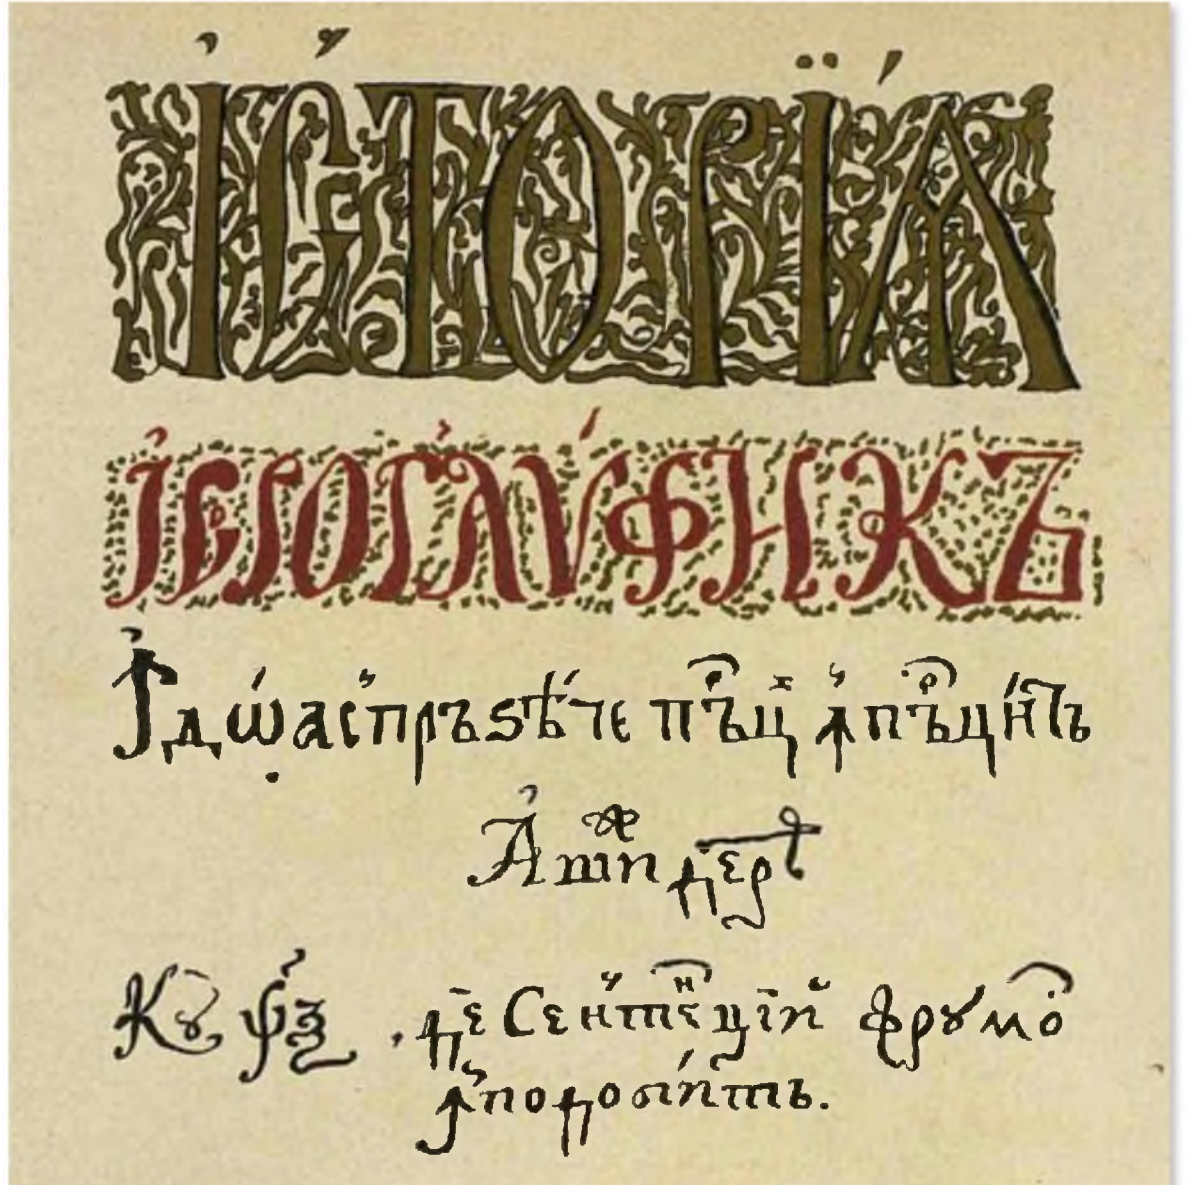 І҆СТОРЇѦ
І҆ЕРОГЛѴФИКЪ
Ꙟ дѡаспръѕѣче пърц ꙟпърцитъ
Ашиждерѣ
Кꙋ ѱѯ . де Сентенїй фрꙋмос
ꙟподобитъ.